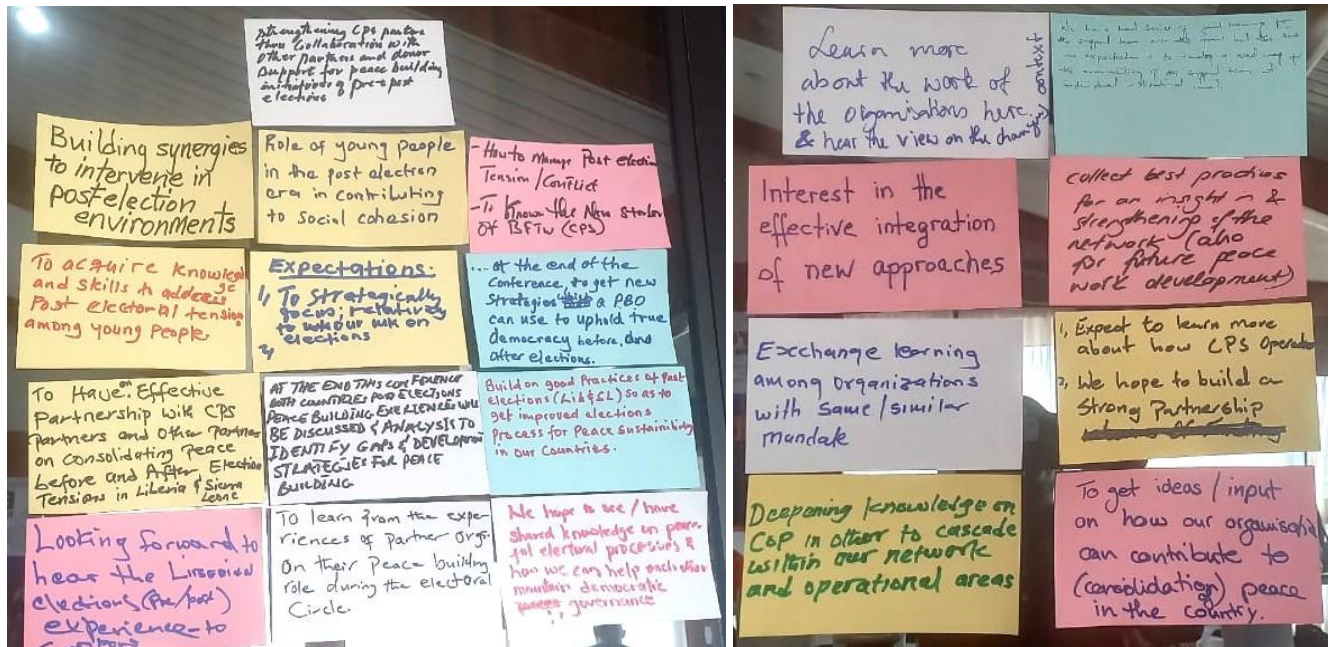 Strengthening CPS partners
thru Collaboration with
Other partners and donor
Support for peace building
initiatives of pre + post
elections
Building synergies
to intervene in
post election
environments
Role of young people
in the post election
era in contributing
to Social cohesion
- How to Manage Post election
Tension / Conflict
- To Know the New
of BFTW (CPS)
To acquire knowledge
and skills to address
Post electoral tension
among young people.
Expectations:
1, To Strategically
focus; relatives
to our wk on
elections
2,
... at the end of the
Conference, to get new
Strategies a PBO
can use to uphold true
democracy before, and
after elections.
To Have an Effective
Partnership with CPS
partners and Other Partner
on Consolidating Peace
before and After Election
Tensions in Liberia & Sierra
Leone
AT THE END THIS CONFERENCE
BOTH COUNTRIES POST ELECTIONS
PEACE BUILDING EXERIENCE WILL
BE DISCUSSED & ANALYSIS TO
IDENTIFY GAPS & DEVELOPMENT
STRATEGIES FOR PEACE
BUILDING
Build on good Practices of Past
elections (Lib & SL) so as to
get improved elections
Process for Peace Sustainibility
in our Countries.
Looking forward to
hear the LIBERIAN
elections (Pre/post)
experience to
To learn from the expe-
riences of partner Orgs.
On their Peace building
role during the electoral
Circle.
We hope to see / have
shared knowledge on peace-
ful electural processes &
how we can help each other
maintain democratic
governance
Learn more
about the work of
the organisations here
& hear the view on the
context
We have a
Interest in the
effective integration
of new approaches
collect best practices
for an insight in &
strengthening of the
network (also
for future peace
work development)
Exchange learning
among Organizations
with Same / similar
mandate
1, Expect to learn more
about how CPS Operates
2, We hope to build a
Strong Partnership
Deepening knowledge on
CoP in other to cascade
within our network
and operational areas
To get ideas / input
on how our organisation
can contribute to
(consolidation) of peace
in the country.